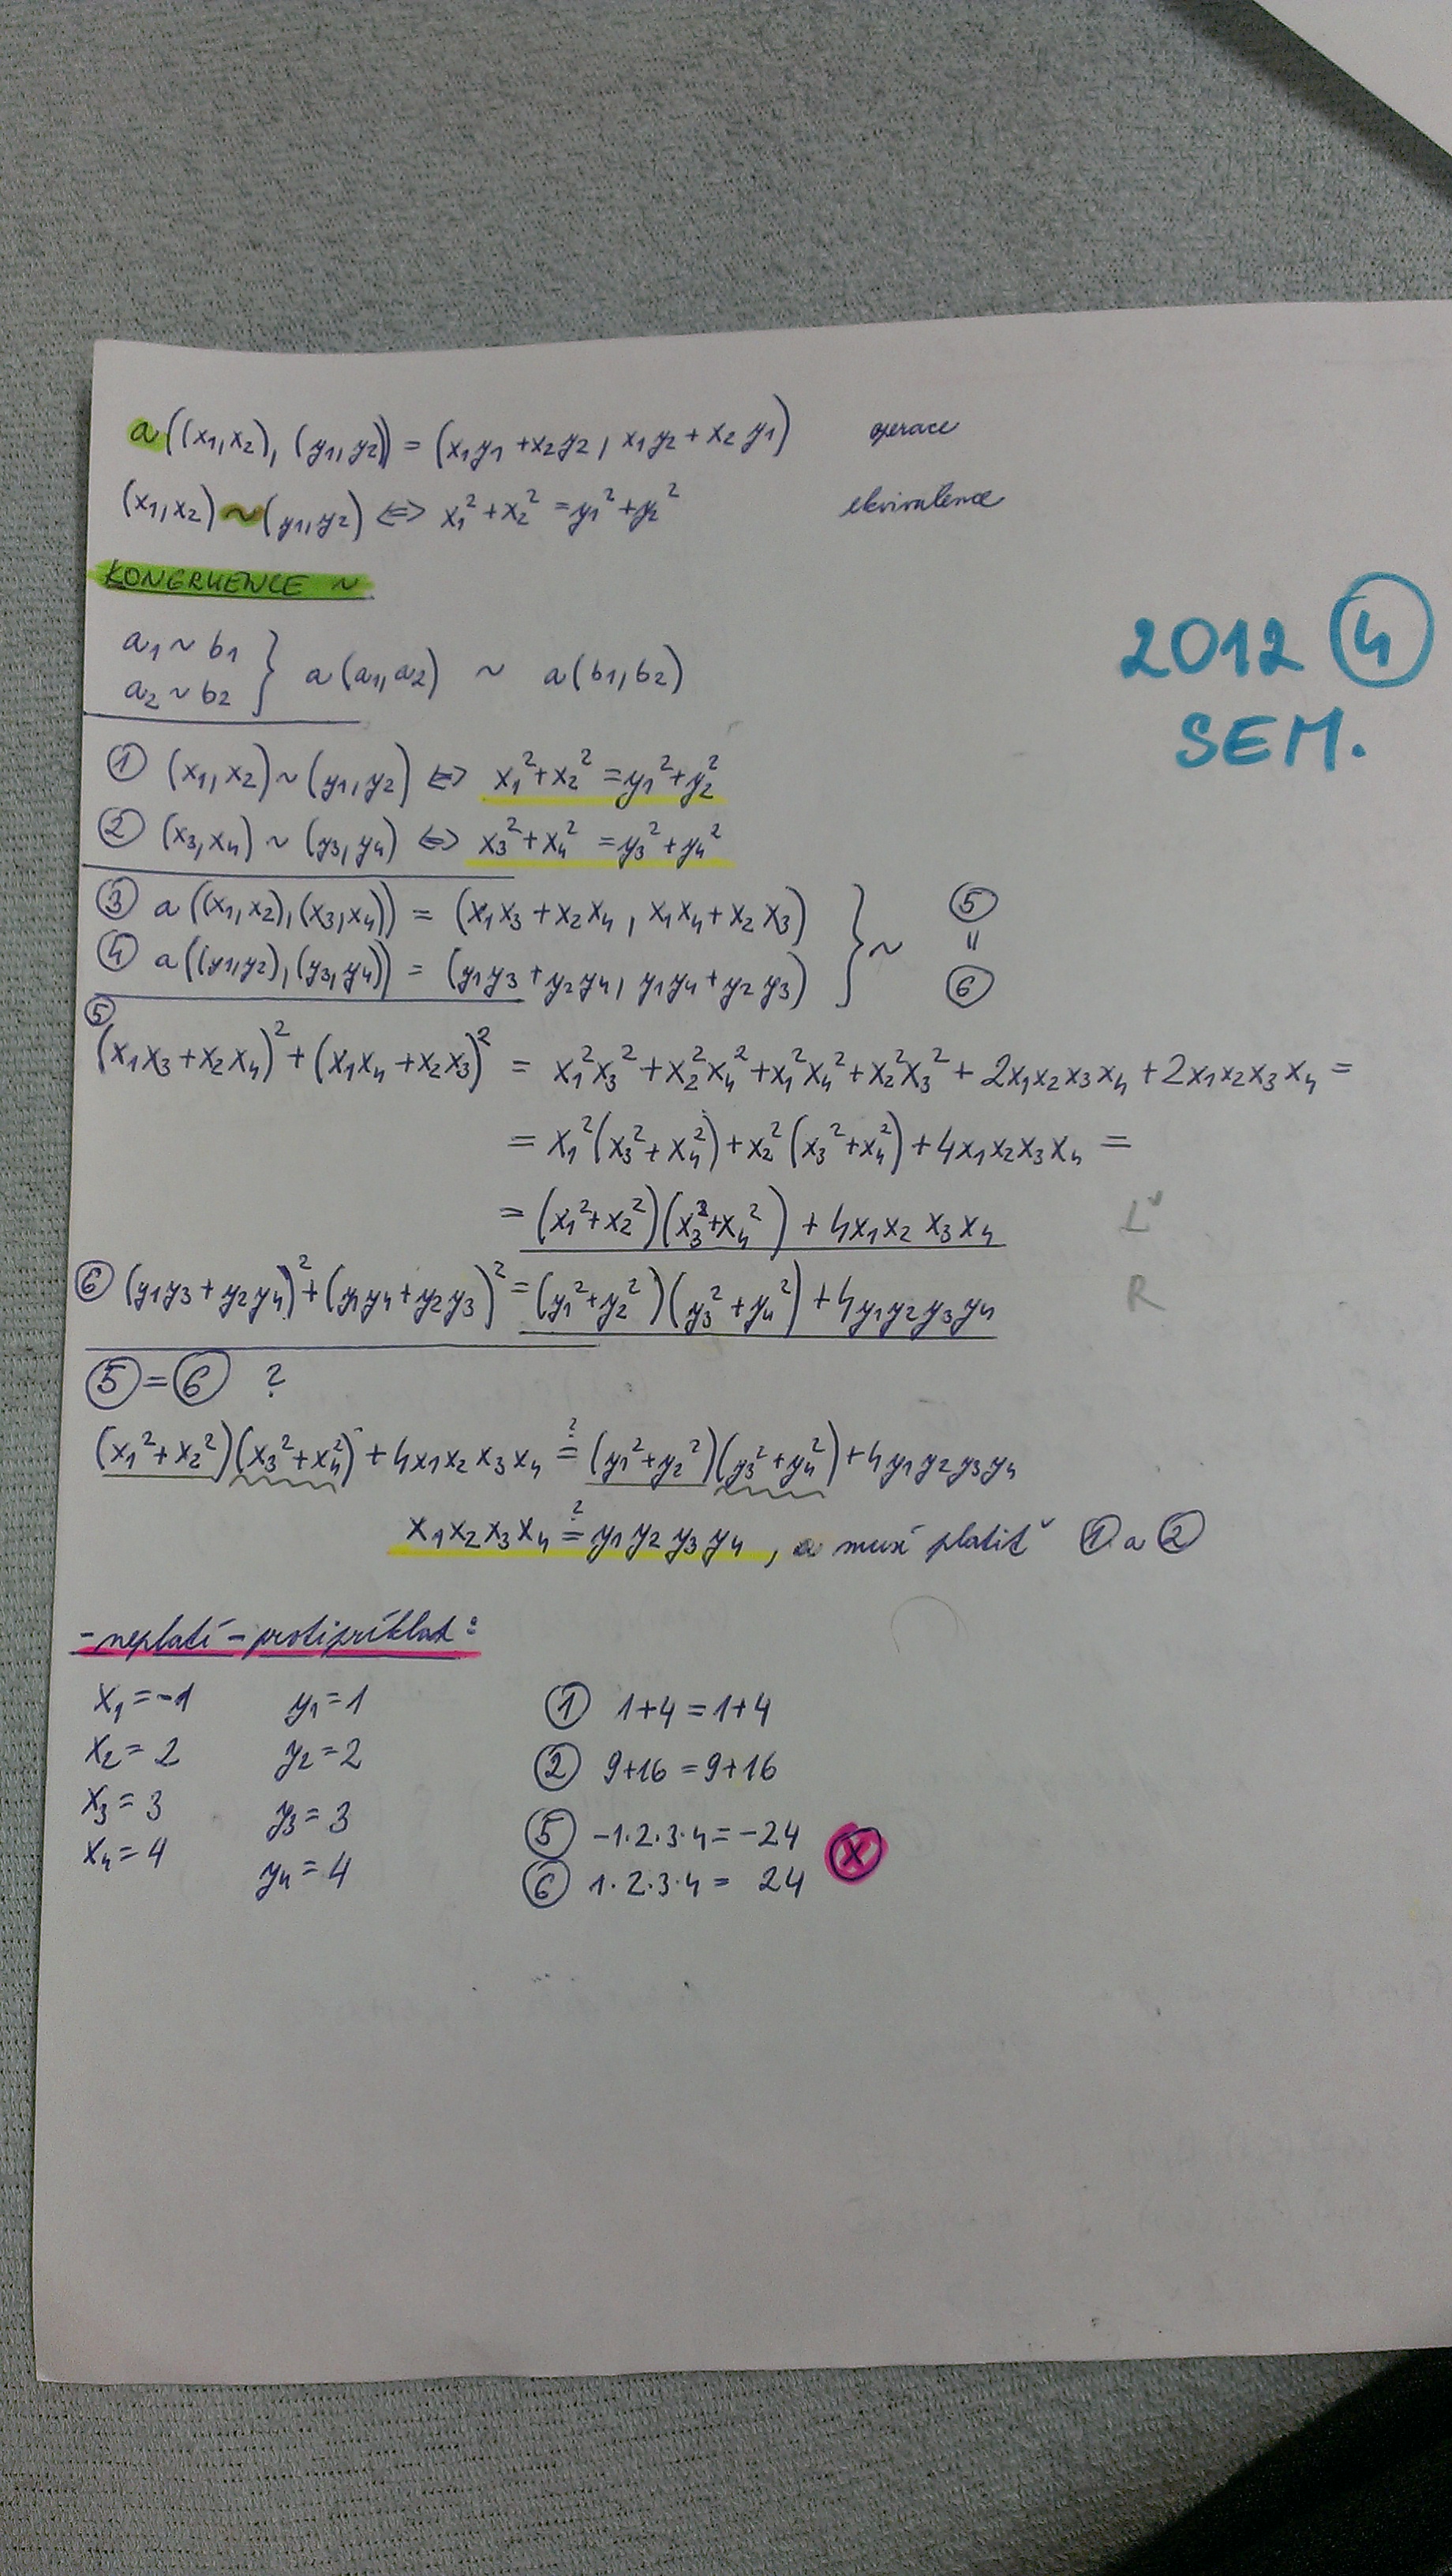 a((x₁,x₂), (y₁,y₂)) = (x₁y₁ + x₂y₂, x₁y₂ + x₂y₁) operace
(x₁,x₂) ~ (y₁,y₂) ⇔ x₁² + x₂² = y₁² + y₂² ekvivalence
KONGRUENCE ~
a₁ ~ b₁
a₂ ~ b₂ } a(a₁,a₂) ~ a(b₁,b₂)
2012 ④
SEM.
① (x₁,x₂) ~ (y₁,y₂) ⇔ x₁² + x₂² = y₁² + y₂²
② (x₃,x₄) ~ (y₃,y₄) ⇔ x₃² + x₄² = y₃² + y₄²
③ a((x₁,x₂),(x₃,x₄)) = (x₁x₃ + x₂x₄, x₁x₄ + x₂x₃) } ~ ⑤
=
④ a((y₁,y₂),(y₃,y₄)) = (y₁y₃ + y₂y₄, y₁y₄ + y₂y₃) ⑥
⑤ (x₁x₃ + x₂x₄)² + (x₁x₄ + x₂x₃)² = x₁²x₃² + x₂²x₄² + x₁²x₄² + x₂²x₃² + 2x₁x₂x₃x₄ + 2x₁x₂x₃x₄ =
= x₁²(x₃² + x₄²) + x₂²(x₃² + x₄²) + 4x₁x₂x₃x₄ =
= (x₁² + x₂²)(x₃² + x₄²) + 4x₁x₂x₃x₄ L
⑥ (y₁y₃ + y₂y₄)² + (y₁y₄ + y₂y₃)² = (y₁² + y₂²)(y₃² + y₄²) + 4y₁y₂y₃y₄ R
⑤ = ⑥ ?
(x₁² + x₂²)(x₃² + x₄²) + 4x₁x₂x₃x₄ ≟ (y₁² + y₂²)(y₃² + y₄²) + 4y₁y₂y₃y₄
x₁x₂x₃x₄ ≟ y₁y₂y₃y₄, a musí platit ① a ②
- neplatí - protipříklad:
x₁ = -1 y₁ = 1 ① 1+4 = 1+4
x₂ = 2 y₂ = 2 ② 9+16 = 9+16
x₃ = 3 y₃ = 3 ⑤ -1·2·3·4 = -24
x₄ = 4 y₄ = 4 ⑥ 1·2·3·4 = 24 ⓧ